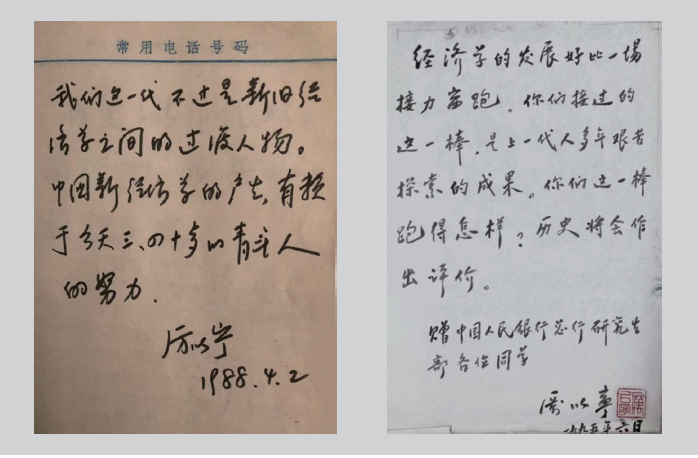 常用电话号码
我们这一代不过是新旧经
济学之间的过渡人物。
中国新经济学的产生,有赖
于今天三、四十岁的青年人
的努力.
厉以宁
1988.4.2
经济学的发展好比一场
接力赛跑。你们接过的
这一棒,是上一代人多年艰苦
探索的成果。你们这一棒
跑得怎样?历史将会作
出评价。
赠中国人民银行总行研究生
部各位同学
厲以寧
一九九五年六月